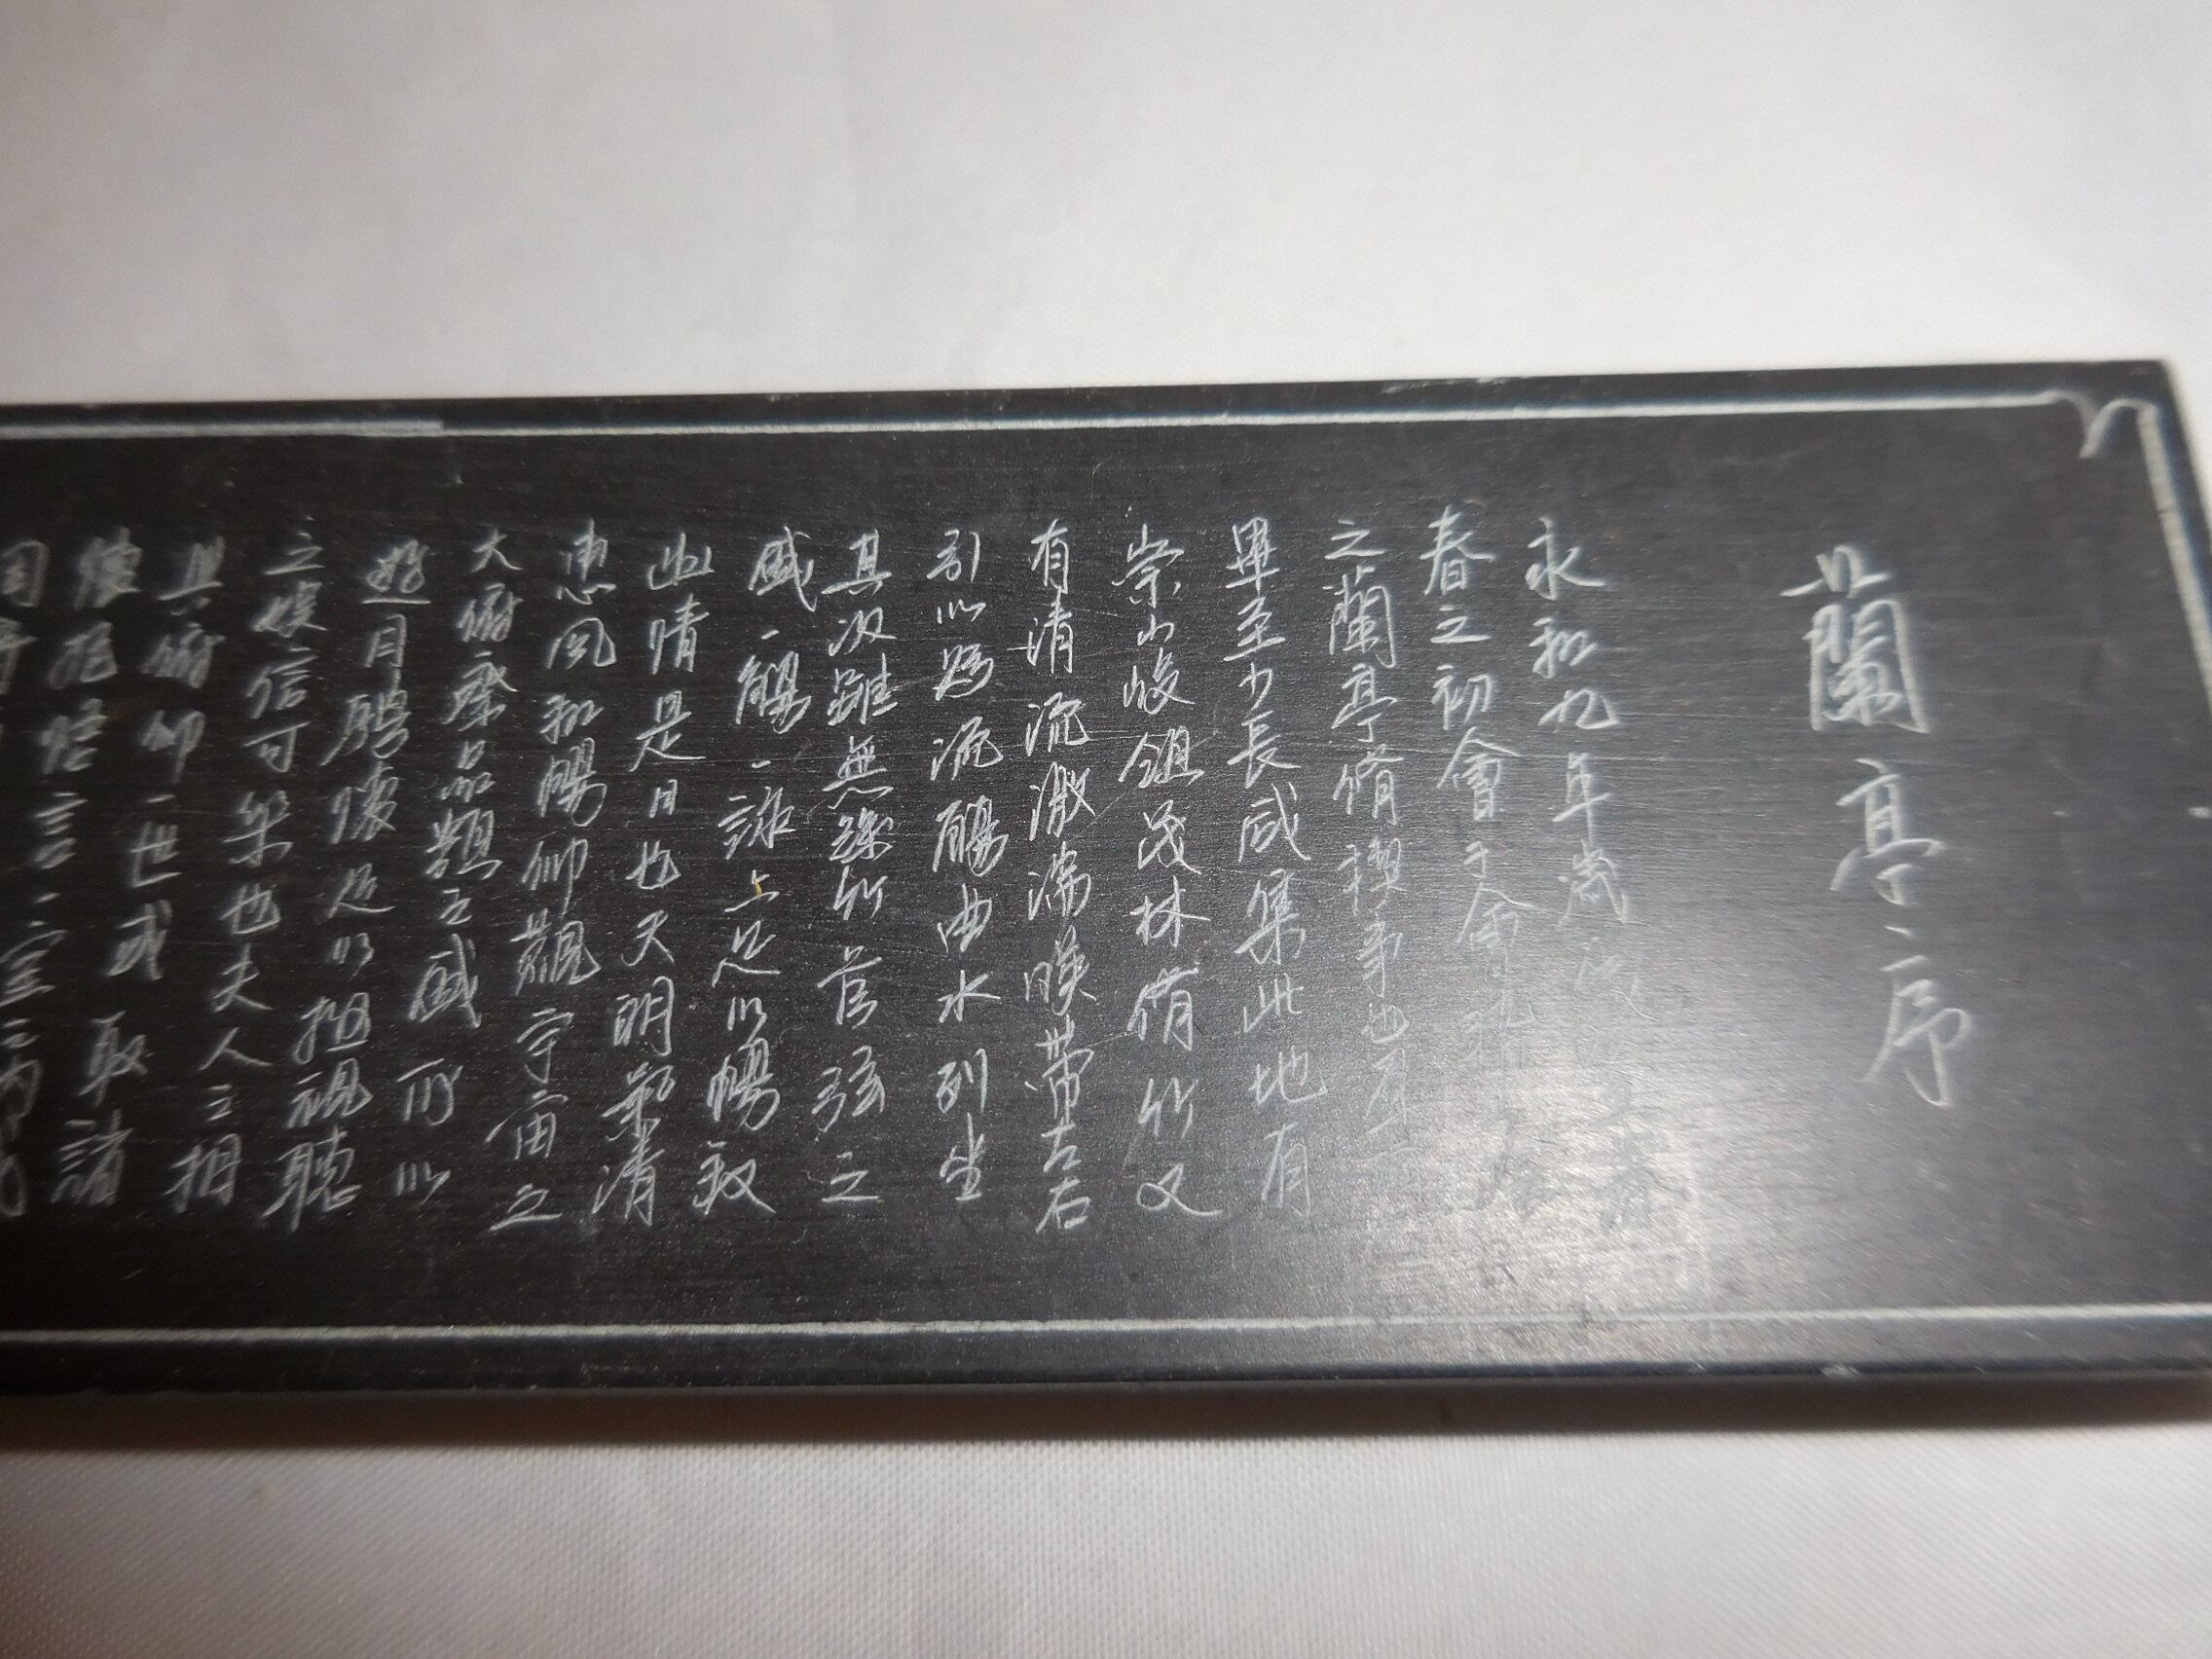 蘭亭序
永和九年歲
春之初會于會稽
之蘭亭脩禊事也
畢至少長咸集此地有
崇山峻領茂林脩竹又
有清流激湍暎帶左右
引以為流觴曲水列坐
其次雖無絲竹管弦之
盛一觴一詠上足以暢叙
幽情是日也天朗氣清
惠風和暢仰觀宇宙之
大俯察品類之盛所以
遊目騁懷足以極視聽
之娛信可樂也夫人之相
與俯仰一世或取諸
懷抱悟言一室之內